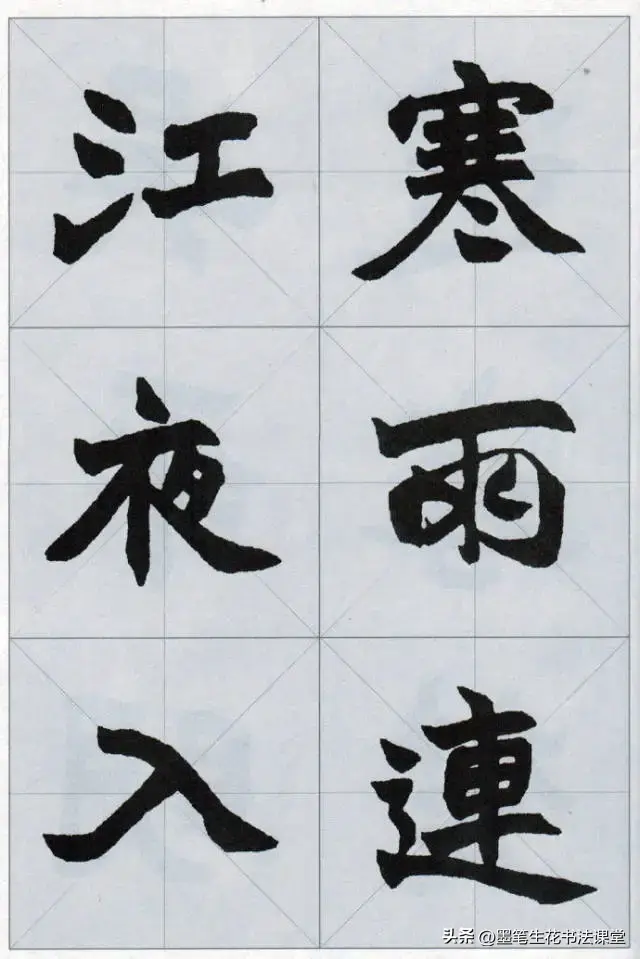 寒雨連
江夜入
头条 @墨笔生花书法课堂